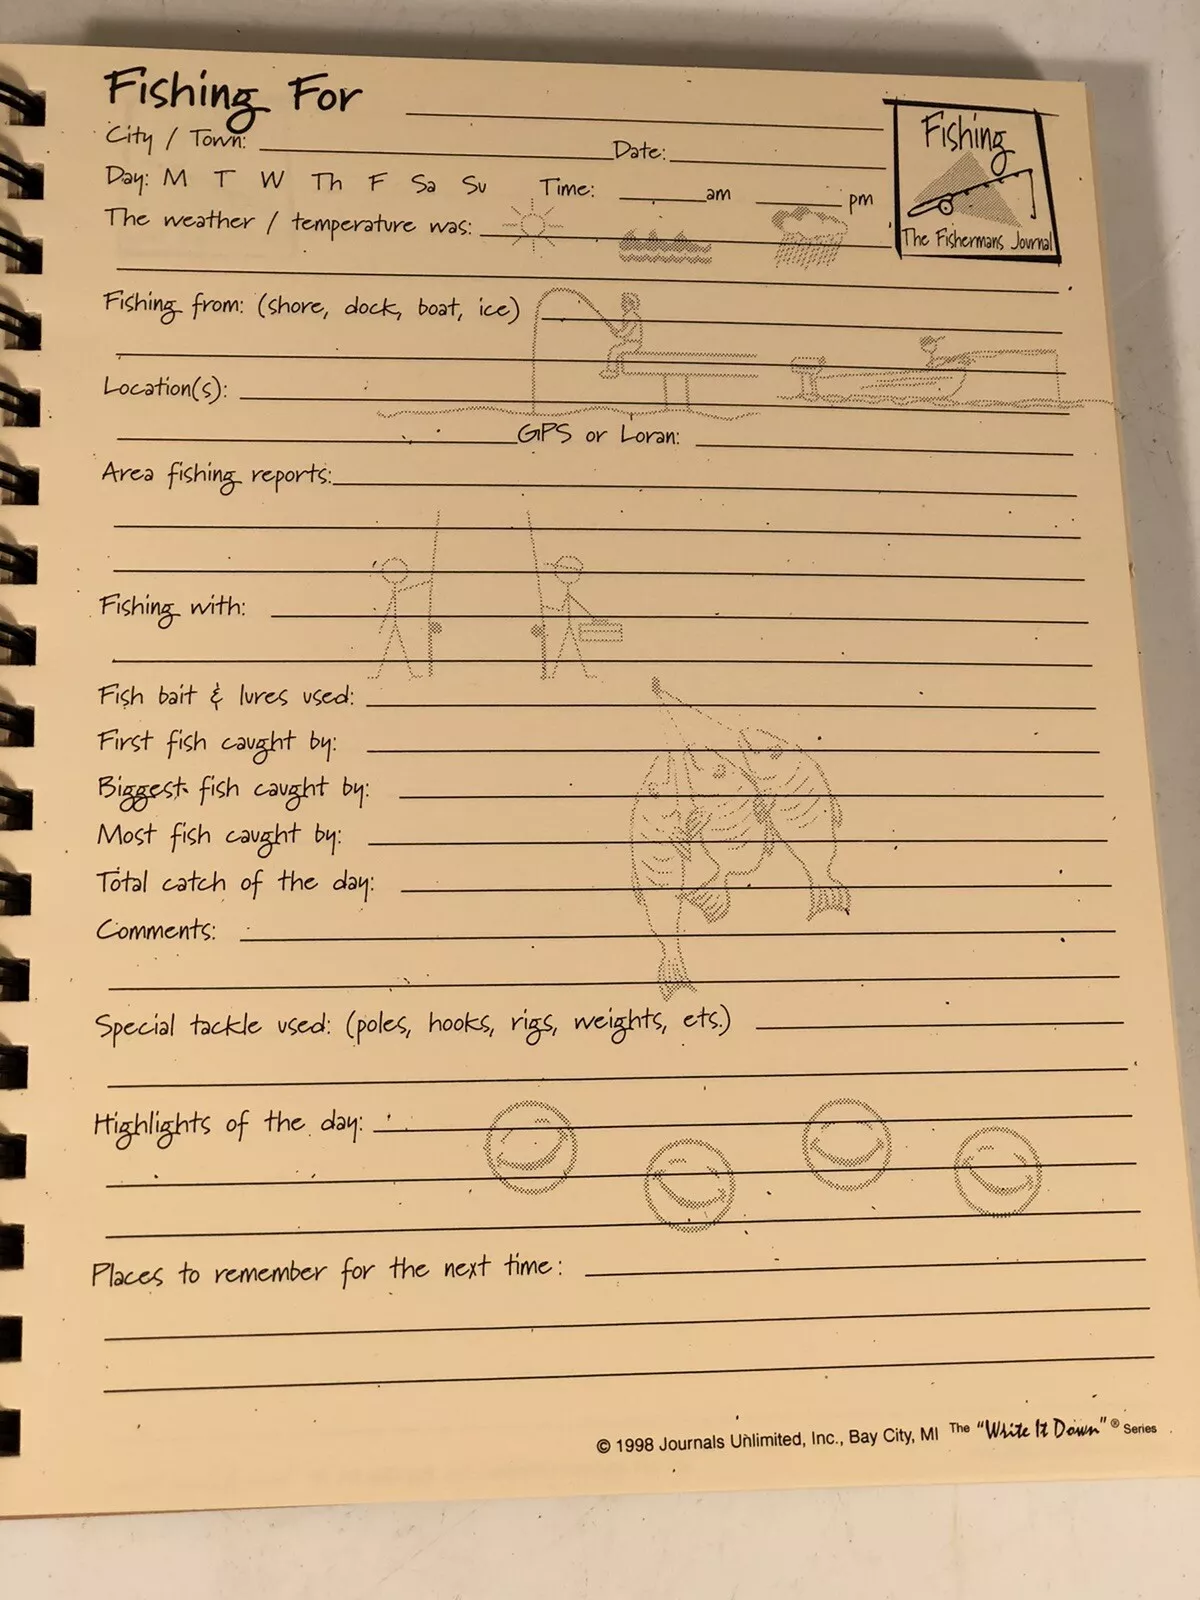 Fishing For
City / Town: Date:
Day: M T W Th F Sa Su Time: am pm
Fishing
The Fishermans Journal
The weather / temperature was:
Fishing from: (shore, dock, boat, ice)
Location(s):
GPS or Loran:
Area fishing reports:
Fishing with:
Fish bait & lures used:
First fish caught by:
Biggest fish caught by:
Most fish caught by:
Total catch of the day:
Comments:
Special tackle used: (poles, hooks, rigs, weights, ets.)
Highlights of the day:
Places to remember for the next time:
© 1998 Journals Unlimited, Inc., Bay City, MI The "Write It Down"® Series